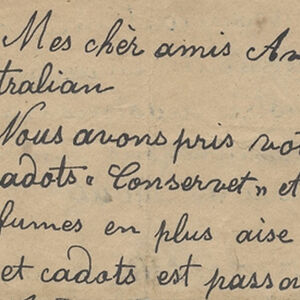 Mes chèr amis Au
tralian
Nous avons pris vo
adots « Conservet » et
fumes en plus aise
et cadots est passa